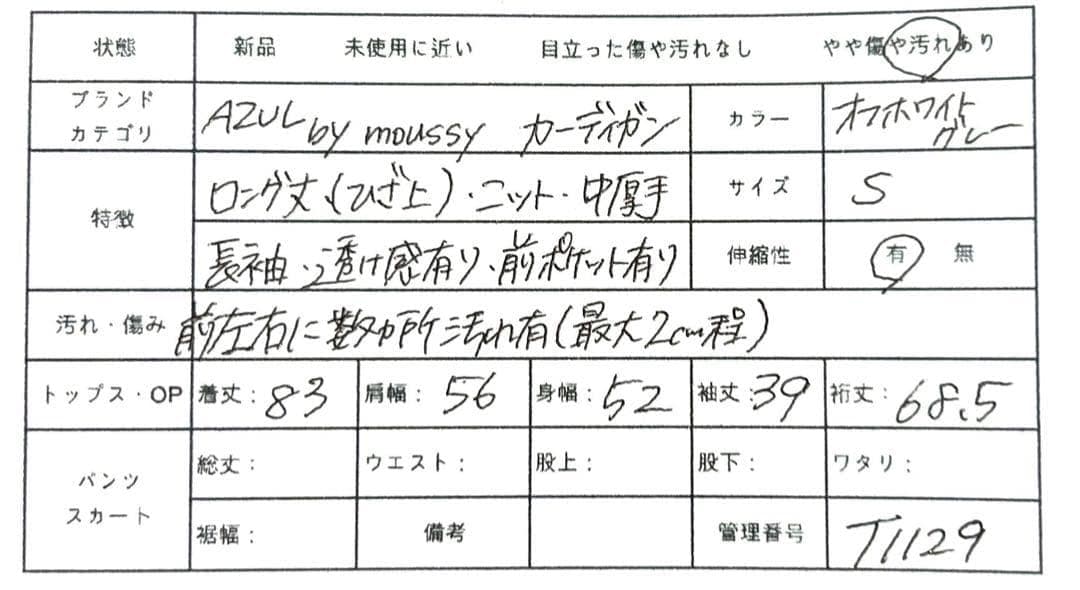 状態 新品 未使用に近い 目立った傷や汚れなし やや傷や汚れあり
ブランド
カテゴリ AZUL by moussy カーディガン カラー オフホワイト
グレー
特徴 ロング丈(ひざ上)・ニット・中厚手 サイズ S
長袖・透け感有り・前ポケット有り 伸縮性 有 無
汚れ・傷み 前左右に数カ所汚れ有(最大2cm程)
トップス・OP 着丈: 83 肩幅: 56 身幅: 52 袖丈: 39 裄丈: 68.5
パンツ
スカート 総丈: ウエスト: 股上: 股下: ワタリ:
裾幅: 備考 管理番号 T1129